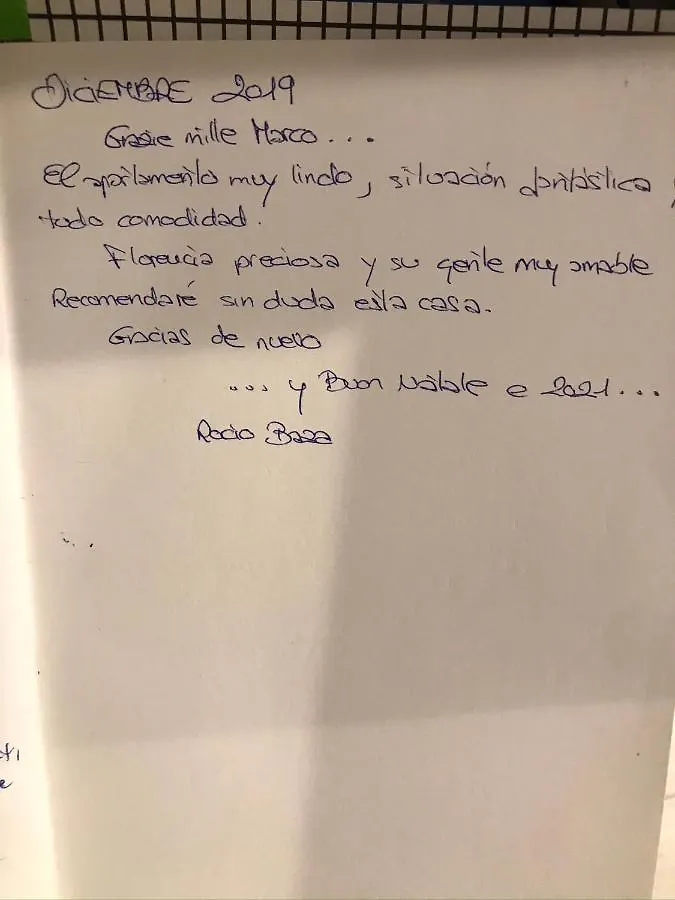 DICIEMBRE 2019
Grazie mille Marco...
El apartamento muy lindo, situación fantástica,
todo comodidad.
Florencia preciosa y su gente muy amable
Recomendaré sin duda esta casa.
Gracias de nuevo
.... y Buon Natale e 2021...
Rocio Baza